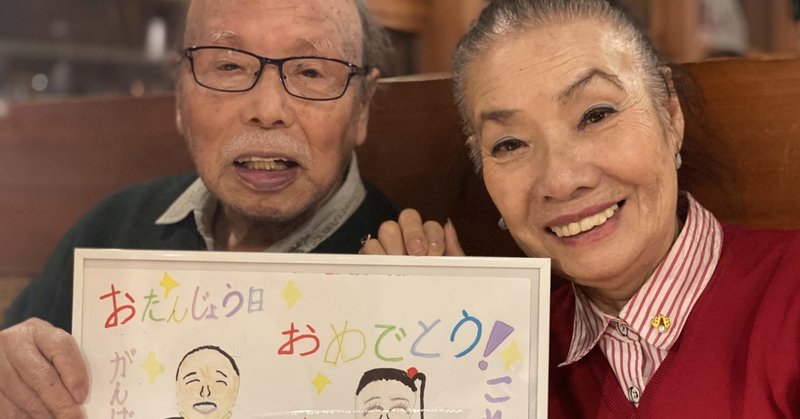 おたんじょう日
おめでとう!
がんば
こ